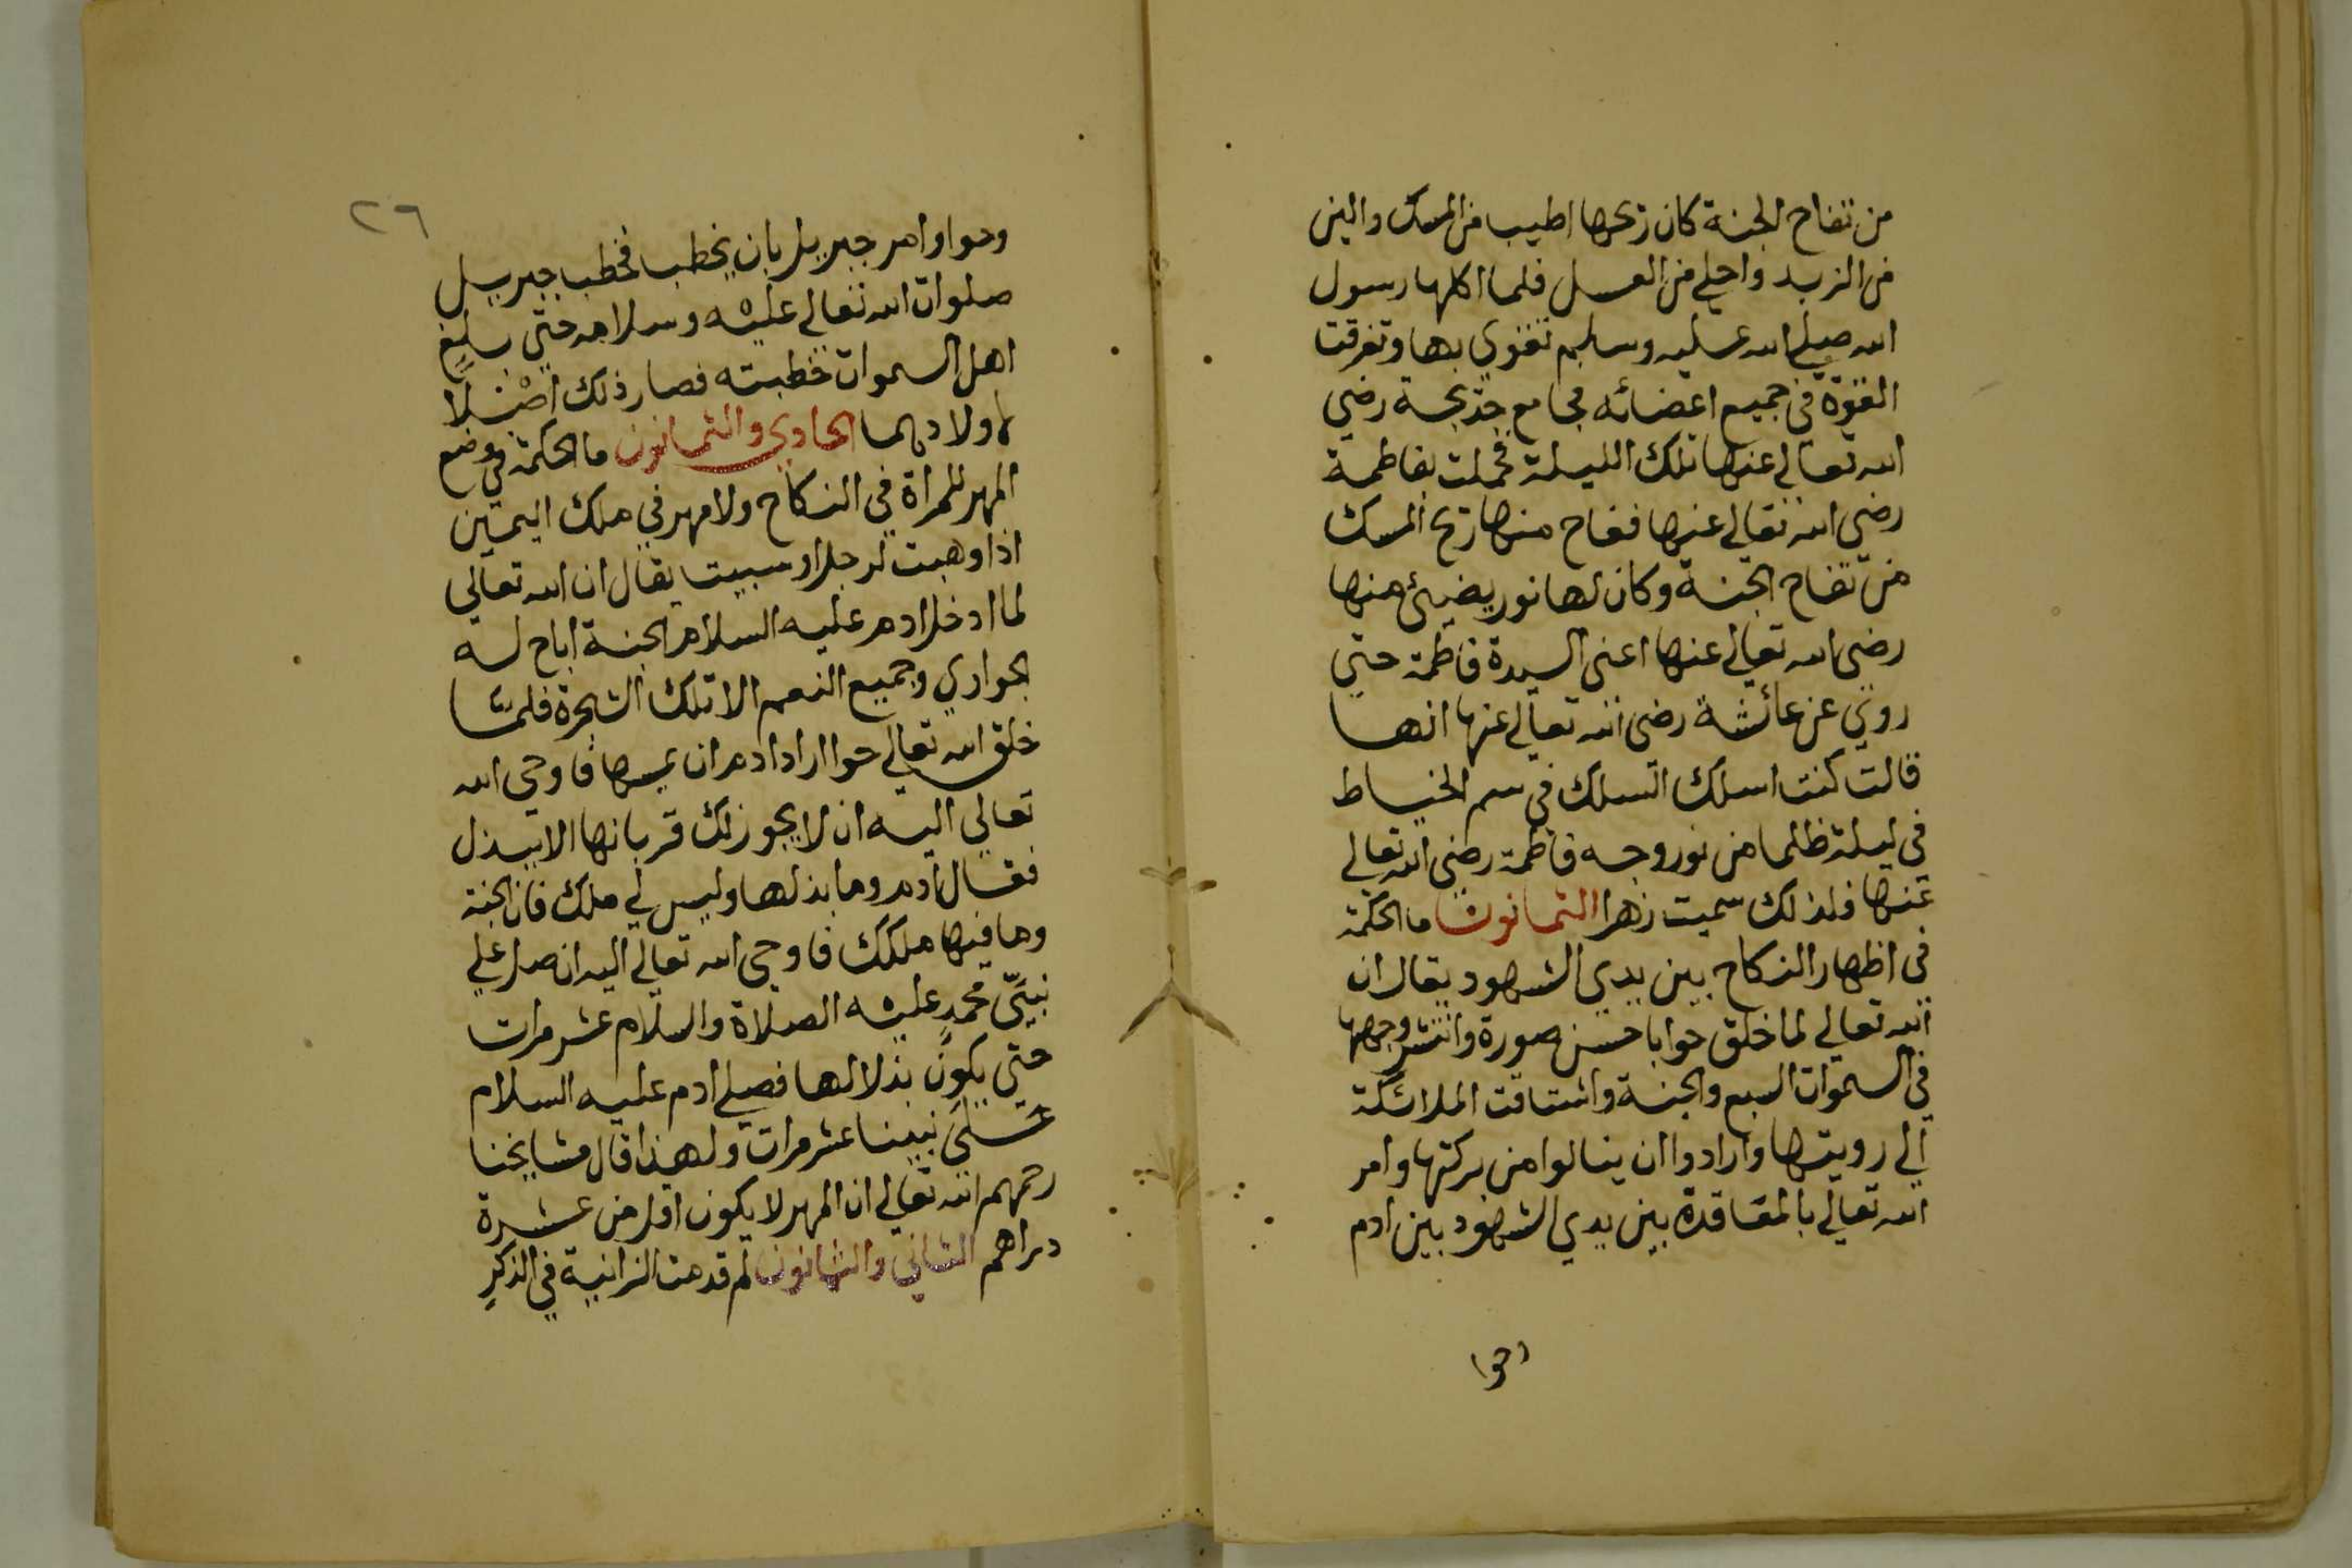 من تفاح الجنة كان ريحها اطيب من المسك والين
من الزبد واحلي من العسل فلما اكلها رسول
الله صلي الله عليه وسلم تقوي بها وتفرقت
القوة في جميع اعضائه فجامع خديجة رضي
الله تعالي عنها تلك الليلة فحملت بفاطمة
رضي الله تعالي عنها ففاح منها ريح المسك
من تفاح الجنة وكان لها نور يضيئ منها
رضي الله تعالي عنها اعني السيدة فاطمة حتي
روي عن عائشة رضي الله تعالي عنها انها
قالت كنت اسلك السلك في سم الخياط
في ليلة ظلما من نور وجه فاطمة رضي الله تعالي
عنها فلذلك سميت زهرا الثمانون ما الحكمة
في اظهار النكاح بين يدي الشهود يقال ان
الله تعالي لما خلق حوا باحسن صورة وانتشر وجهها
في السموات السبع والجنة واشتاقت الملائكة
الي رويتها وارادوا ان ينالوا من بركتها وامر
الله تعالي بالمعاقدة بين يدي الشهود بين ادم
وحوا
٢٦
وحوا وامر جبريل بان يخطب فخطب جبريل
صلوات الله تعالي عليه وسلامه حتي سمع
اهل السموات خطبته فصار ذلك اصلا
لاولادهما الحادي والثمانون ما الحكمة في وضع
المهر للمراة في النكاح ولا مهر في ملك اليمين
اذا وهبت لرجل او سبيت يقال ان الله تعالي
لما ادخل ادم عليه السلام الجنة اباح له
الجواري وجميع النعم الا تلك الشجرة فلما
خلق الله تعالي حوا اراد ادم ان يمسها فاوحي الله
تعالي اليه ان لا يجوز لك قربانها الا ببذل
فقال ادم وما بذلها وليس لي ملك فان الجنة
وما فيها ملكك فاوحي الله تعالي اليه ان صل علي
نبيي محمد عليه الصلاة والسلام عشر مرات
حتي يكون بذلا لها فصلي ادم عليه السلام
علي نبينا عشر مرات ولهذا قال مشايخنا
رحمهم الله تعالي ان المهر لا يكون اقل من عشرة
دراهم الثاني والثمانون لم قدمت الزانية في الذكر